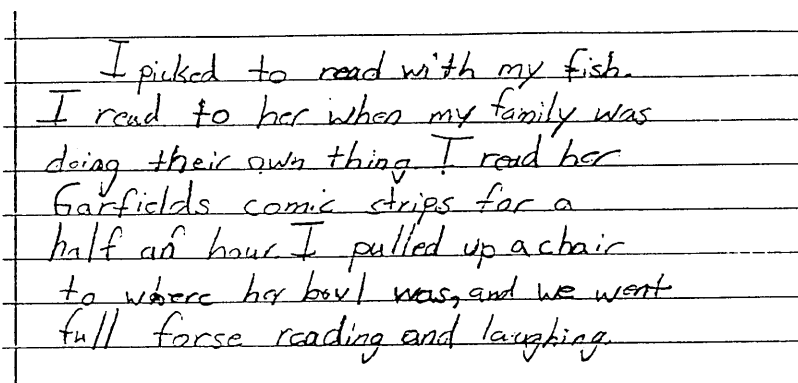 I picked to read with my fish.
I read to her when my family was
doing their own thing I read her
Garfields comic strips for a
half an hour I pulled up a chair
to where her bowl was, and we went
full forse reading and laughing.